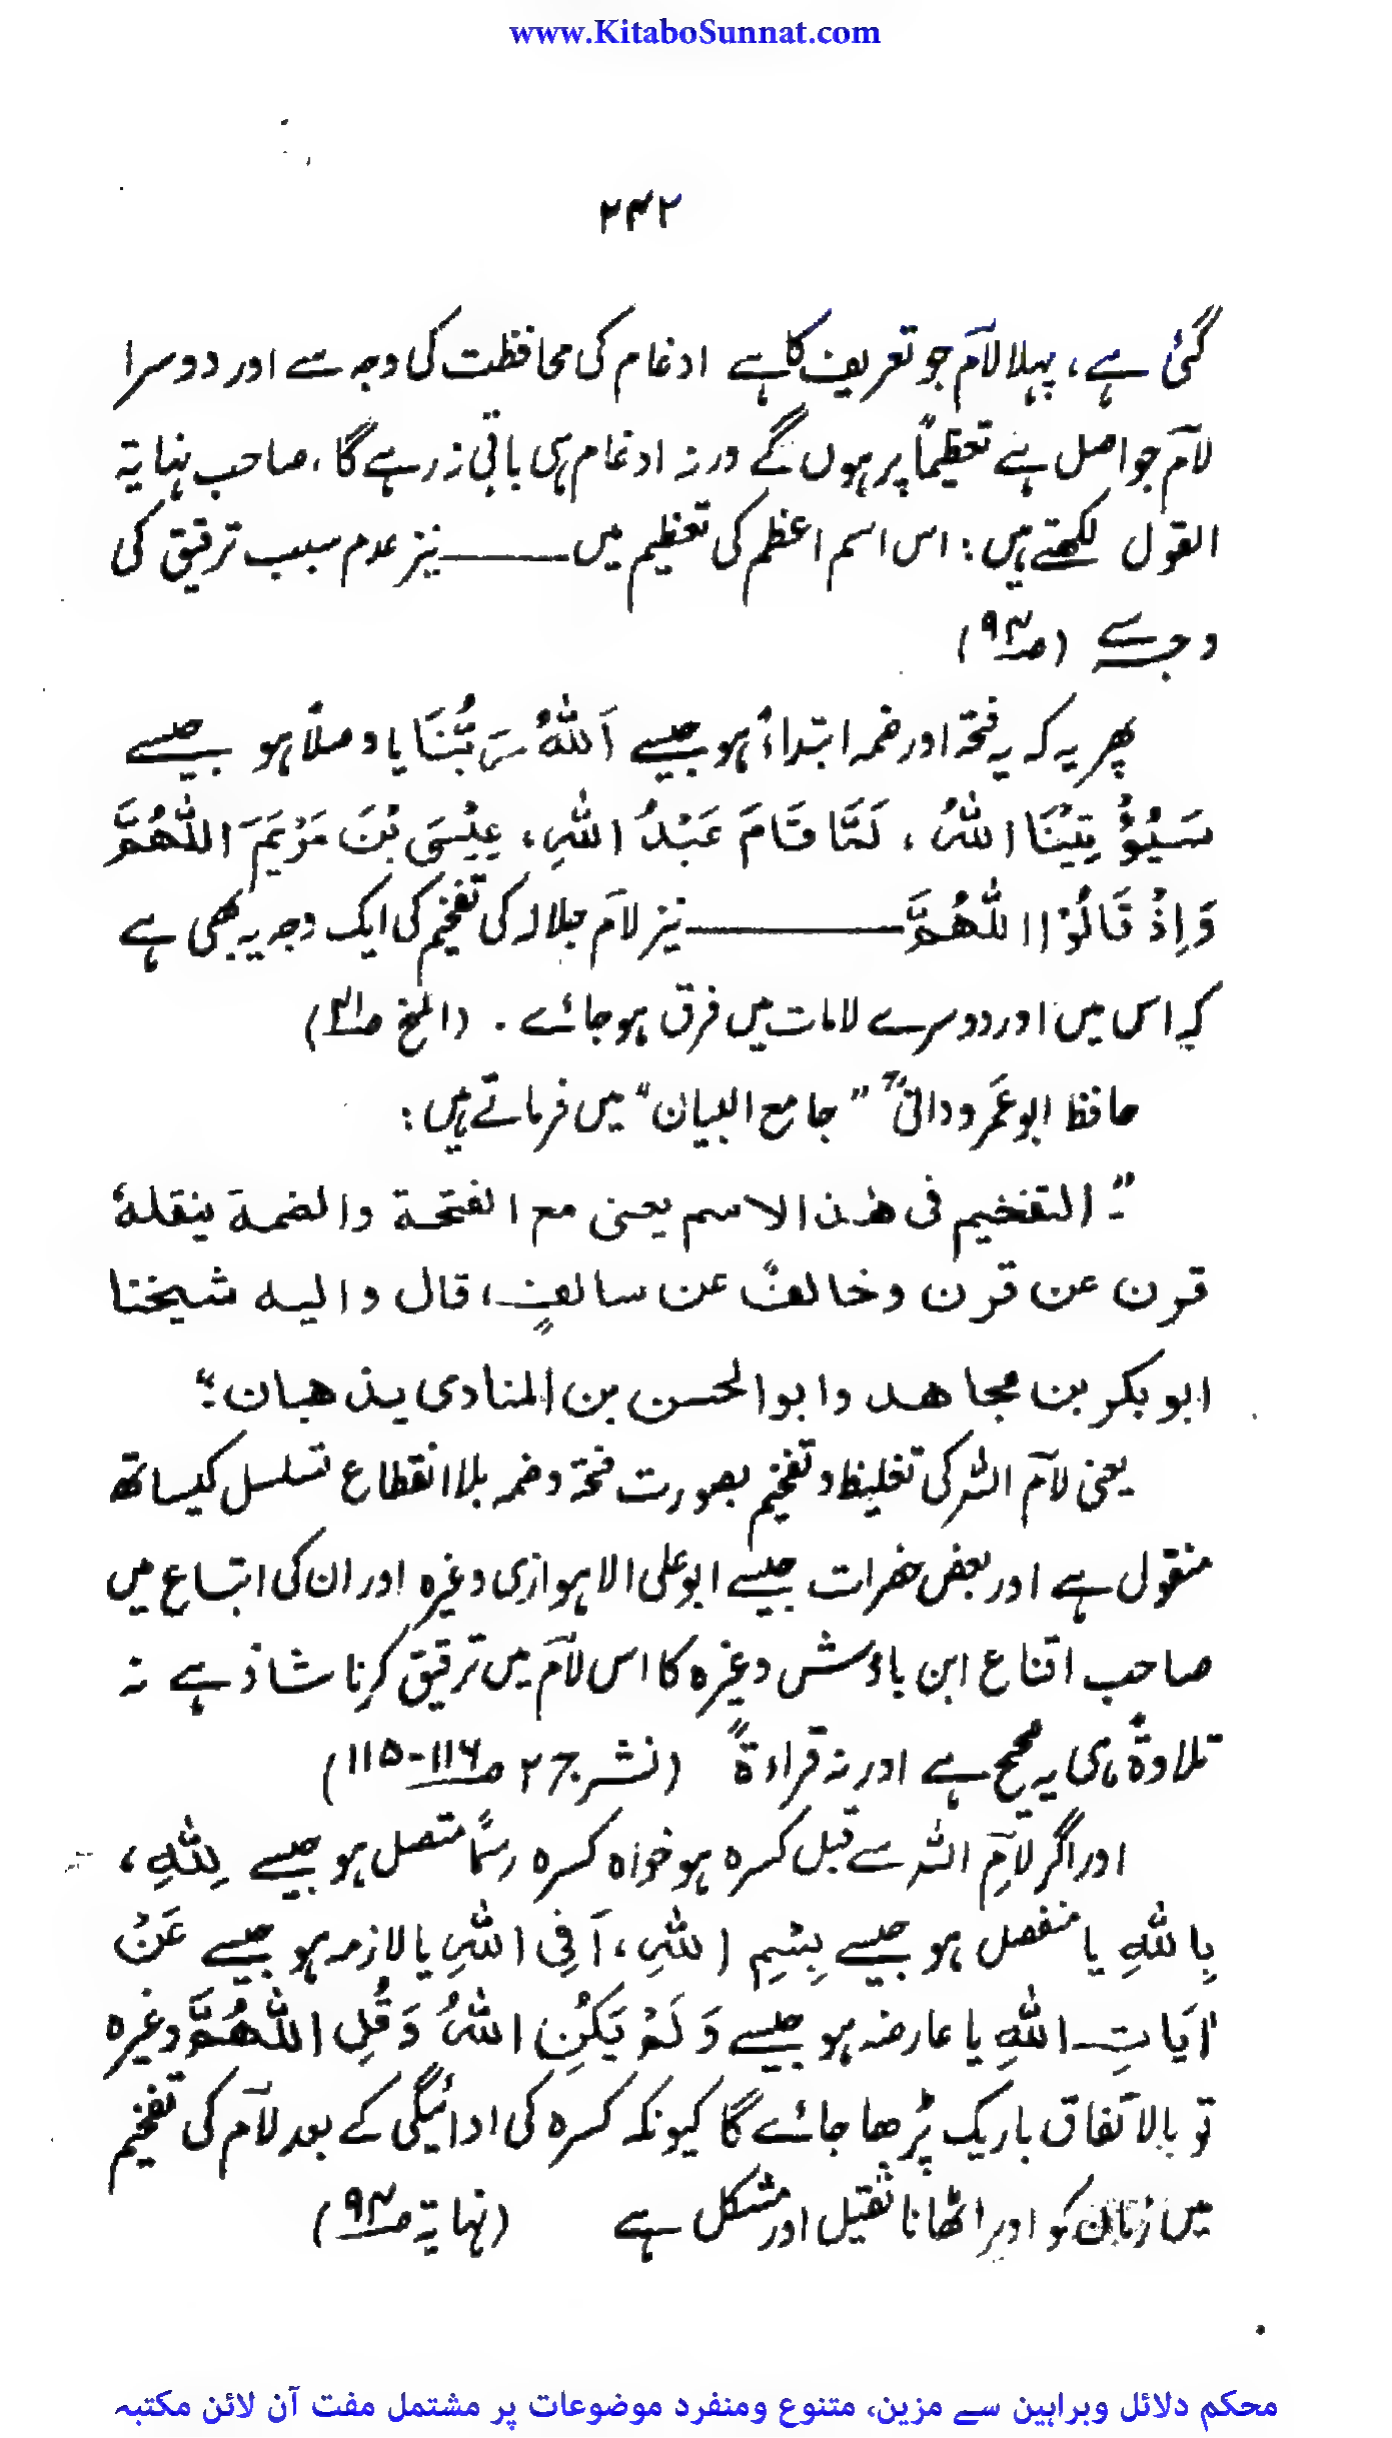 www.KitaboSunnat.com
۲۴۲
گئی ہے، پہلا لآم جو تعریف کا ہے ادغام کی محافظت کی وجہ سے اور دوسرا
لآم جو اصل ہے تعظیماً پر ہوں گے ورنہ ادغام ہی باقی نہ رہے گا، صاحب نہایۃ
القول لکھتے ہیں: اس اسم اعظم کی تعظیم میں ——— نیز عدم سبب ترقیق کی
وجہ سے (صـ۹۳)
پھر یہ کہ یہ فتحہ اور ضمہ ابتداءً ہو جیسے اَللّٰہُ رَبُّنَا یا وصلاً ہو جیسے
سَیُؤْتِیْنَا اللّٰہُ، لَمَّا قَامَ عَبْدُ اللّٰہِ، عِیْسَی بْنَ مَرْیَمَ اللّٰھُمَّ
وَاِذْ قَالُوْا اللّٰھُمَّ ——— نیز لآم جلالہ کی تفخیم کی ایک وجہ یہ بھی ہے
کہ اس میں اور دوسرے لامات میں فرق ہو جائے۔ (المنح صـ۳۱)
حافظ ابو عَمرو دانیؒ ”جامع البیان“ میں فرماتے ہیں:
”التفخیم فی ھٰذا الاسم یعنی مع الفتحۃ والضمۃ ینقلہٗ
قرن عن قرن وخالفٌ عن سالفٍ، قال والیہ شیخنا
ابوبکر بن مجاھد وابوالحسن بن المنادی یذھبان؛“
یعنی لآم اللہ کی تغلیظ و تفخیم بصورت فتحہ و ضمہ بلا انقطاع تسلسل کیساتھ
منقول ہے اور بعض حضرات جیسے ابو علی الاہوازی وغیرہ اور ان کی اتباع میں
صاحب اقناع ابن باذش وغیرہ کا اس لآم میں ترقیق کرنا شاذ ہے نہ
تلاوۃً ہی یہ صحیح ہے اور نہ قراءۃً (نشر ج۲ صـ۱۱۶-۱۱۵)
اور اگر لآمِ اللہ سے قبل کسرہ ہو خواہ کسرہ رسماً متصل ہو جیسے لِلّٰہِ،
بِاللّٰہِ یا منفصل ہو جیسے بِسْمِ اللّٰہِ، اَفِی اللّٰہِ یا لازمہ ہو جیسے عَنْ
اٰیَاتِ اللّٰہِ یا عارضہ ہو جیسے وَلَمْ یَکُنِ اللّٰہُ وَقُلِ اللّٰھُمَّ وغیرہ
تو بالاتفاق باریک پڑھا جائے گا کیونکہ کسرہ کی ادائیگی کے بعد لآم کی تفخیم
میں زبان کو اوپر اٹھانا ثقیل اور مشکل ہے (نہایۃ صـ۹۳)
محکم دلائل وبراہین سے مزین، متنوع ومنفرد موضوعات پر مشتمل مفت آن لائن مکتبہ